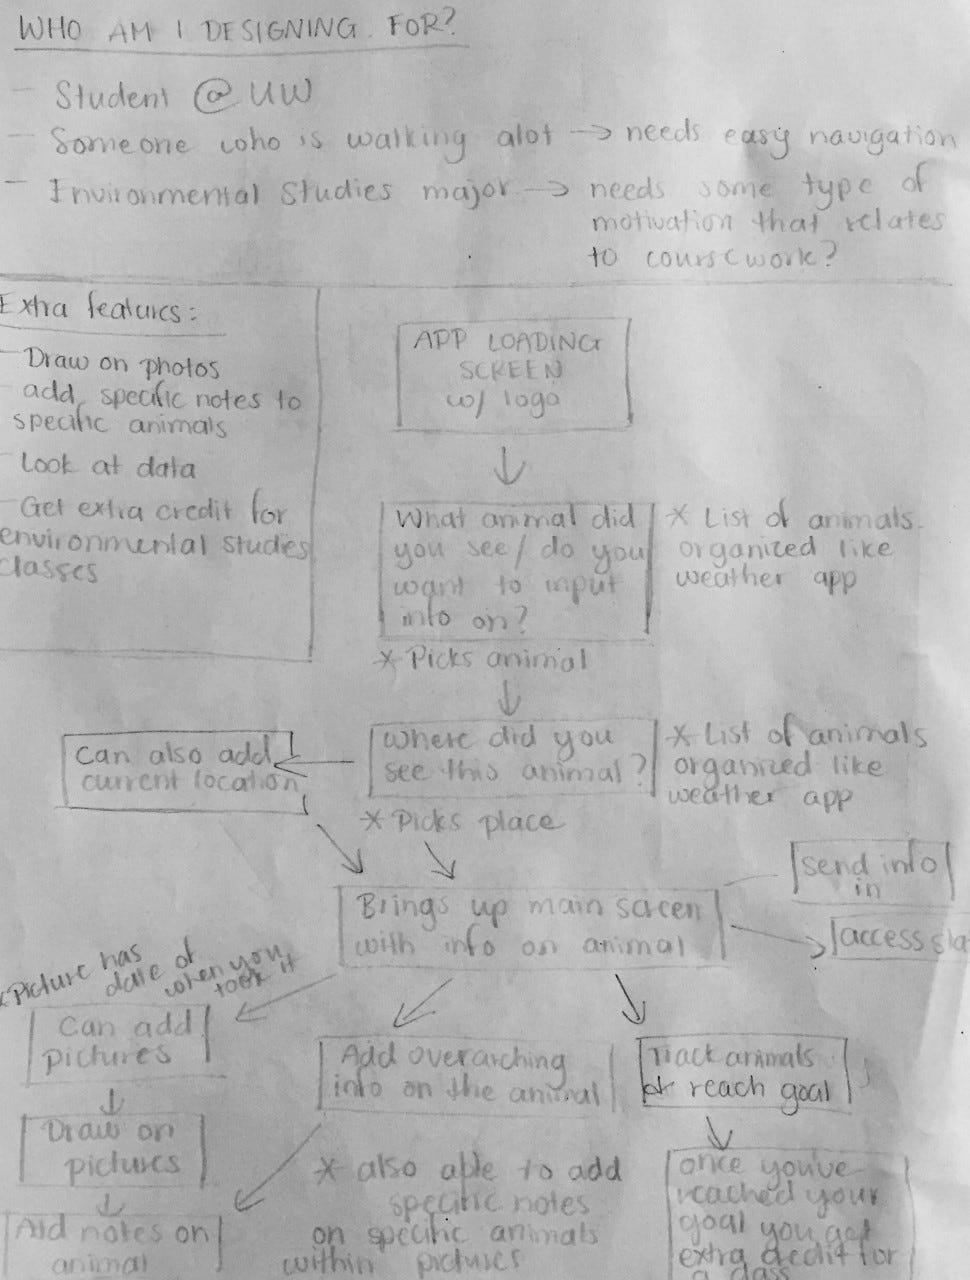 WHO AM I DESIGNING FOR?
- Student @ UW
- Someone who is walking alot → needs easy navigation
- Environmental Studies major → needs some type of
motivation that relates
to coursework?
Extra features:
- Draw on photos
add specific notes to
specific animals
- Look at data
- Get extra credit for
environmental studies
classes
APP LOADING
SCREEN
w/ logo
What animal did
you see/do you
want to input
info on?
* List of animals
organized like
weather app
* Picks animal
Where did you
see this animal?
* List of animals
organized like
weather app
Can also add
current location
* Picks place
Brings up main screen
with info on animal
send info
in
access
* Picture has
date of
when you
took it
Can add
pictures
Add overarching
info on the animal
Track animals
reach goal
Draw on
pictures
* also able to add
specific notes
on specific animals
within pictures
once you've
reached your
goal you get
extra credit for
a class
Add notes on
animal